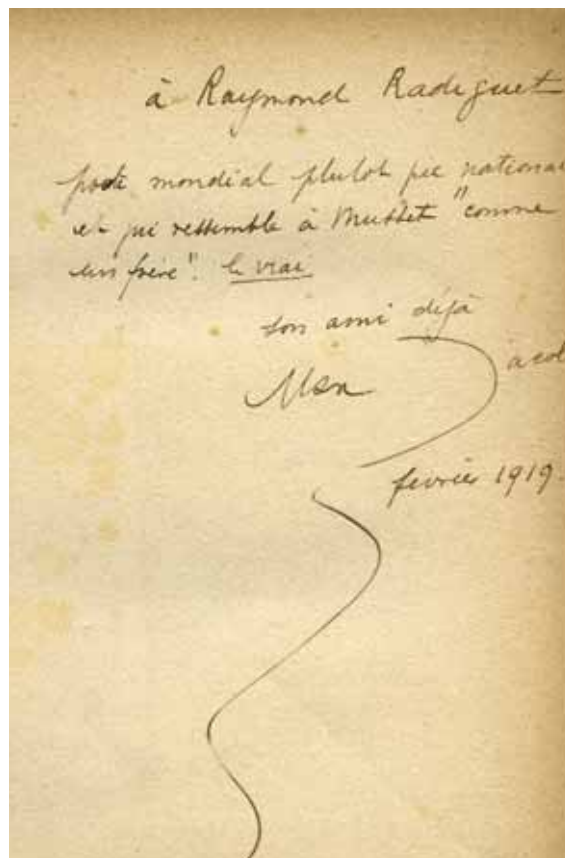 à Raymond Radiguet
poète mondial plutot que national
et qui ressemble à Musset "comme
un frère". le vrai
son ami déjà
Max Jacob
fevrier 1919.